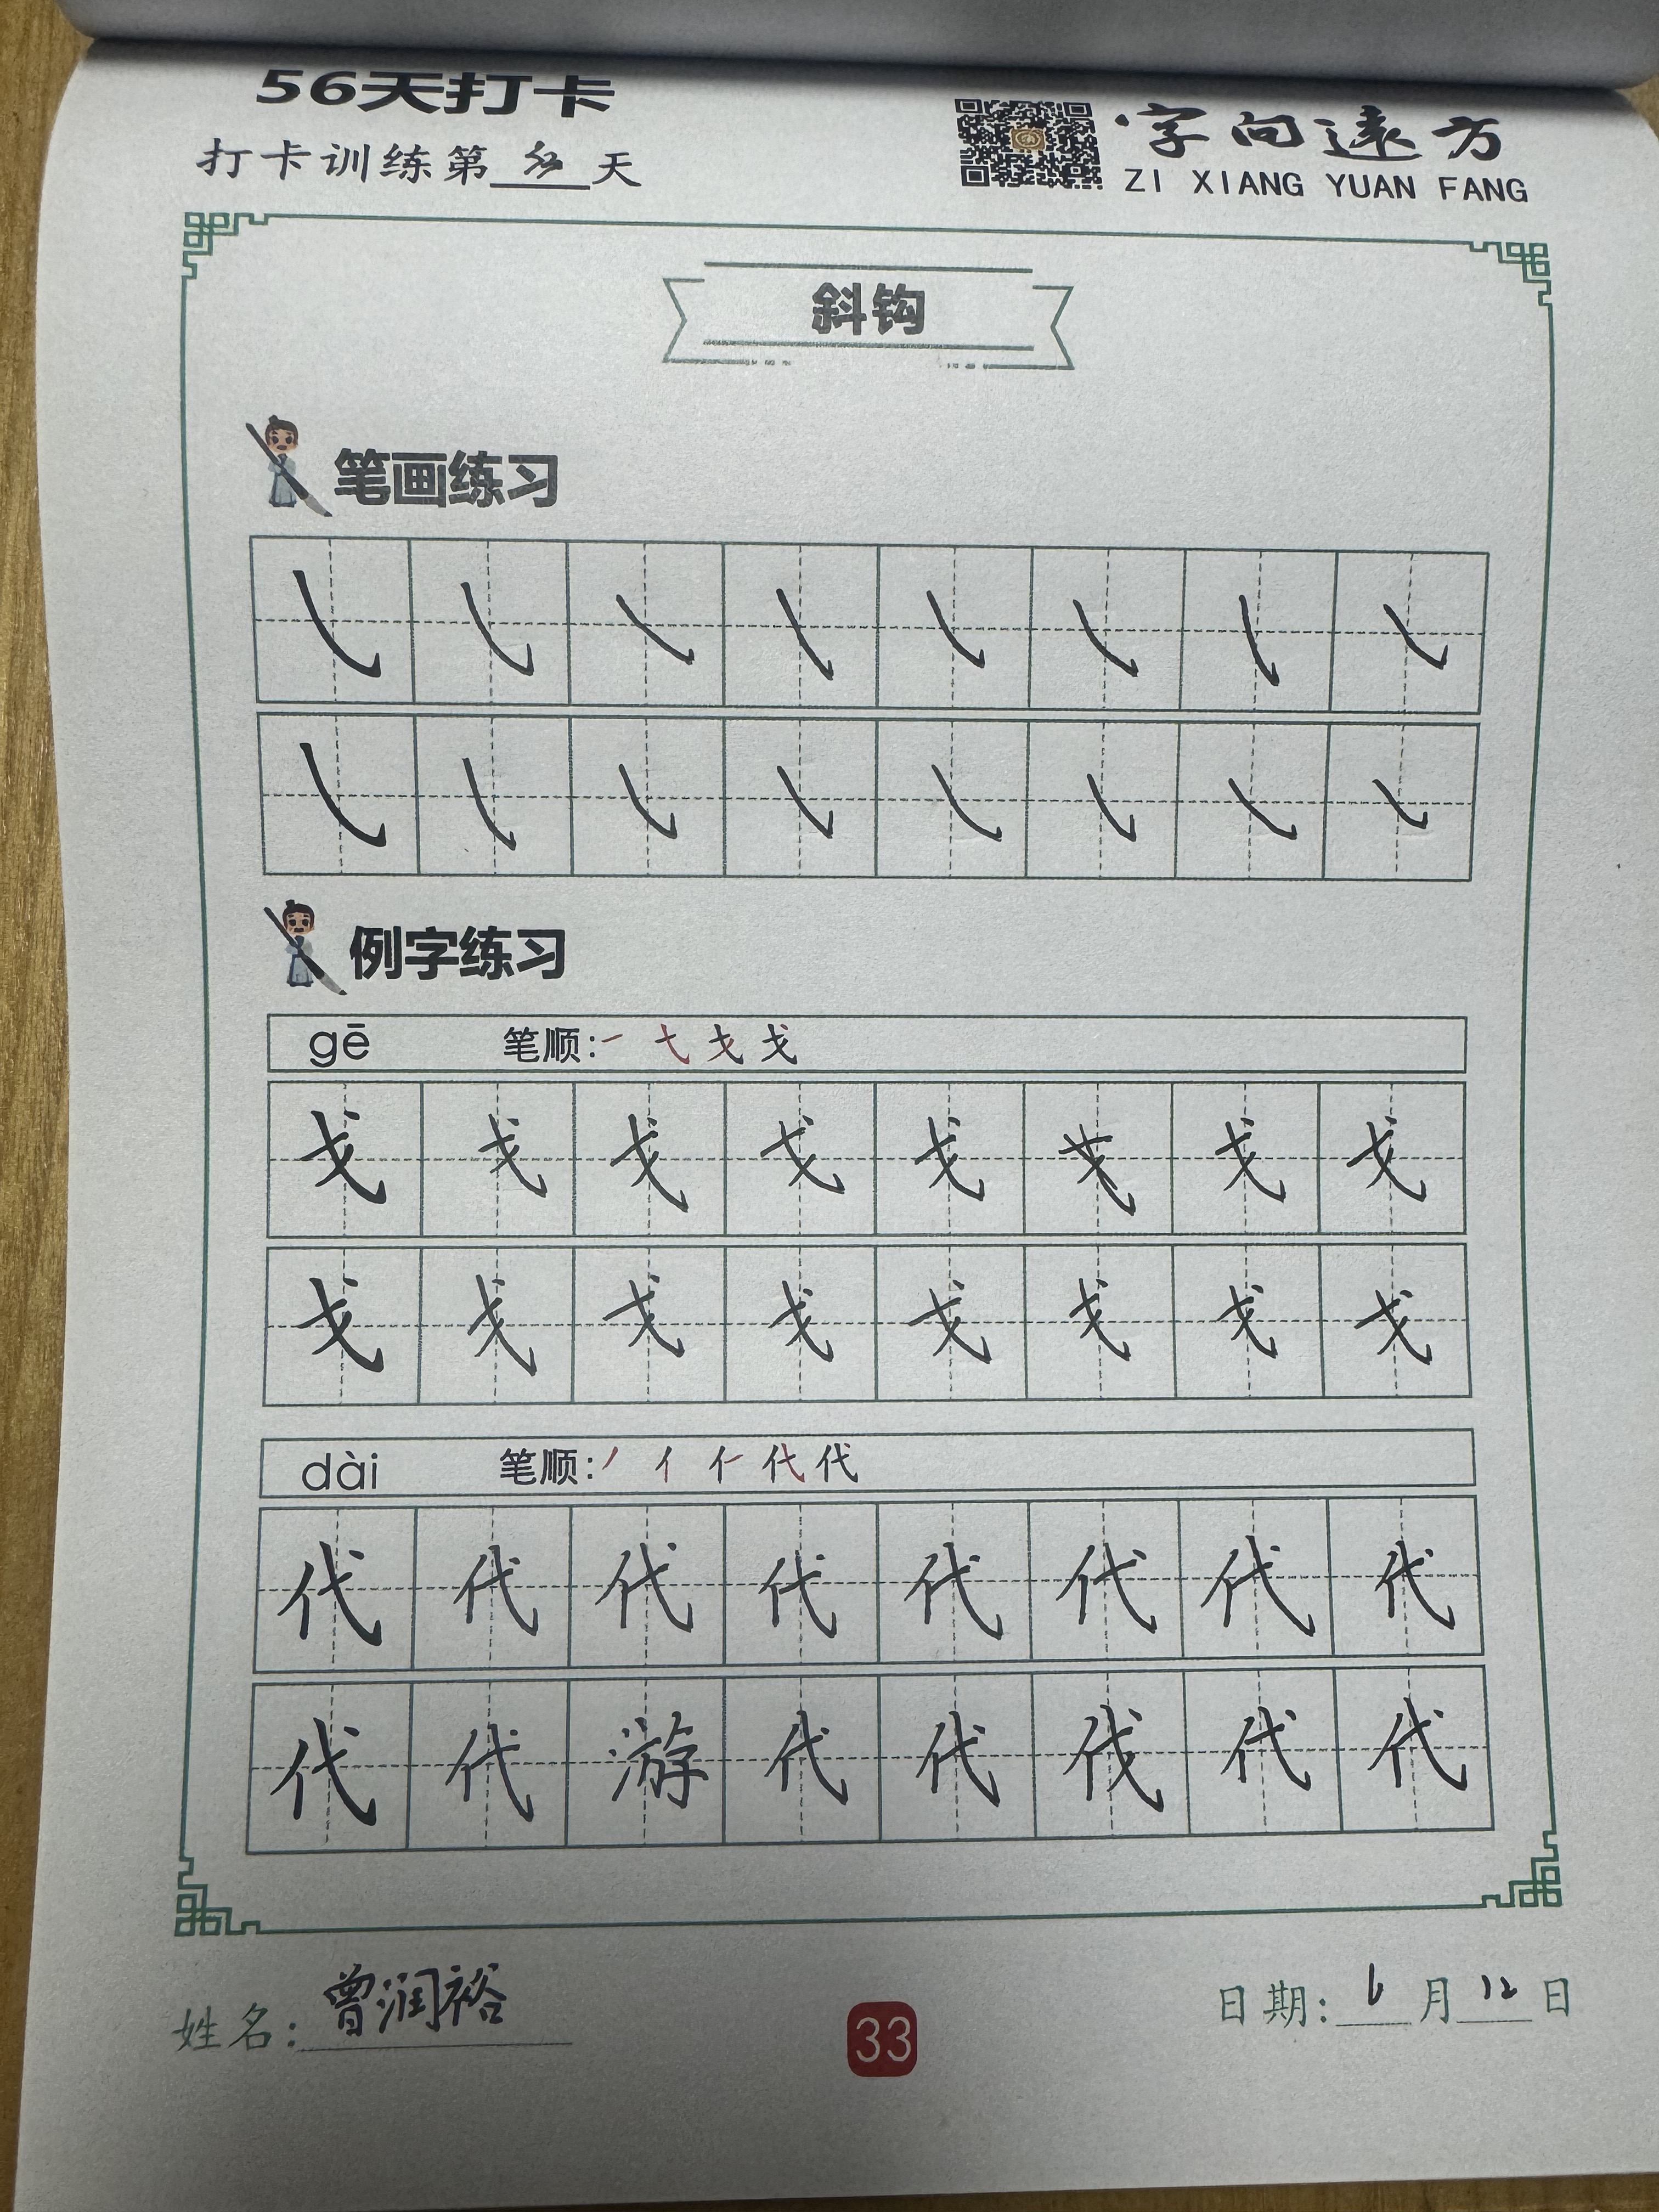 56天打卡
打卡训练第 天
字向遠方
ZI XIANG YUAN FANG
斜钩
笔画练习
㇂ ㇂ ㇂ ㇂ ㇂ ㇂ ㇂ ㇂
㇂ ㇂ ㇂ ㇂ ㇂ ㇂ ㇂ ㇂
例字练习
gē 笔顺:㇀ 七 戈 戈
戈 戈 戈 戈 戈 戈 戈
戈 戈 戈 戈 戈 戈 戈 戈
dài 笔顺:丿 亻 代 代
代 代 代 代 代 代 代 代
代 代 游 代 代 伐 代 代
姓名:曾润裕
33
日期:6月12日